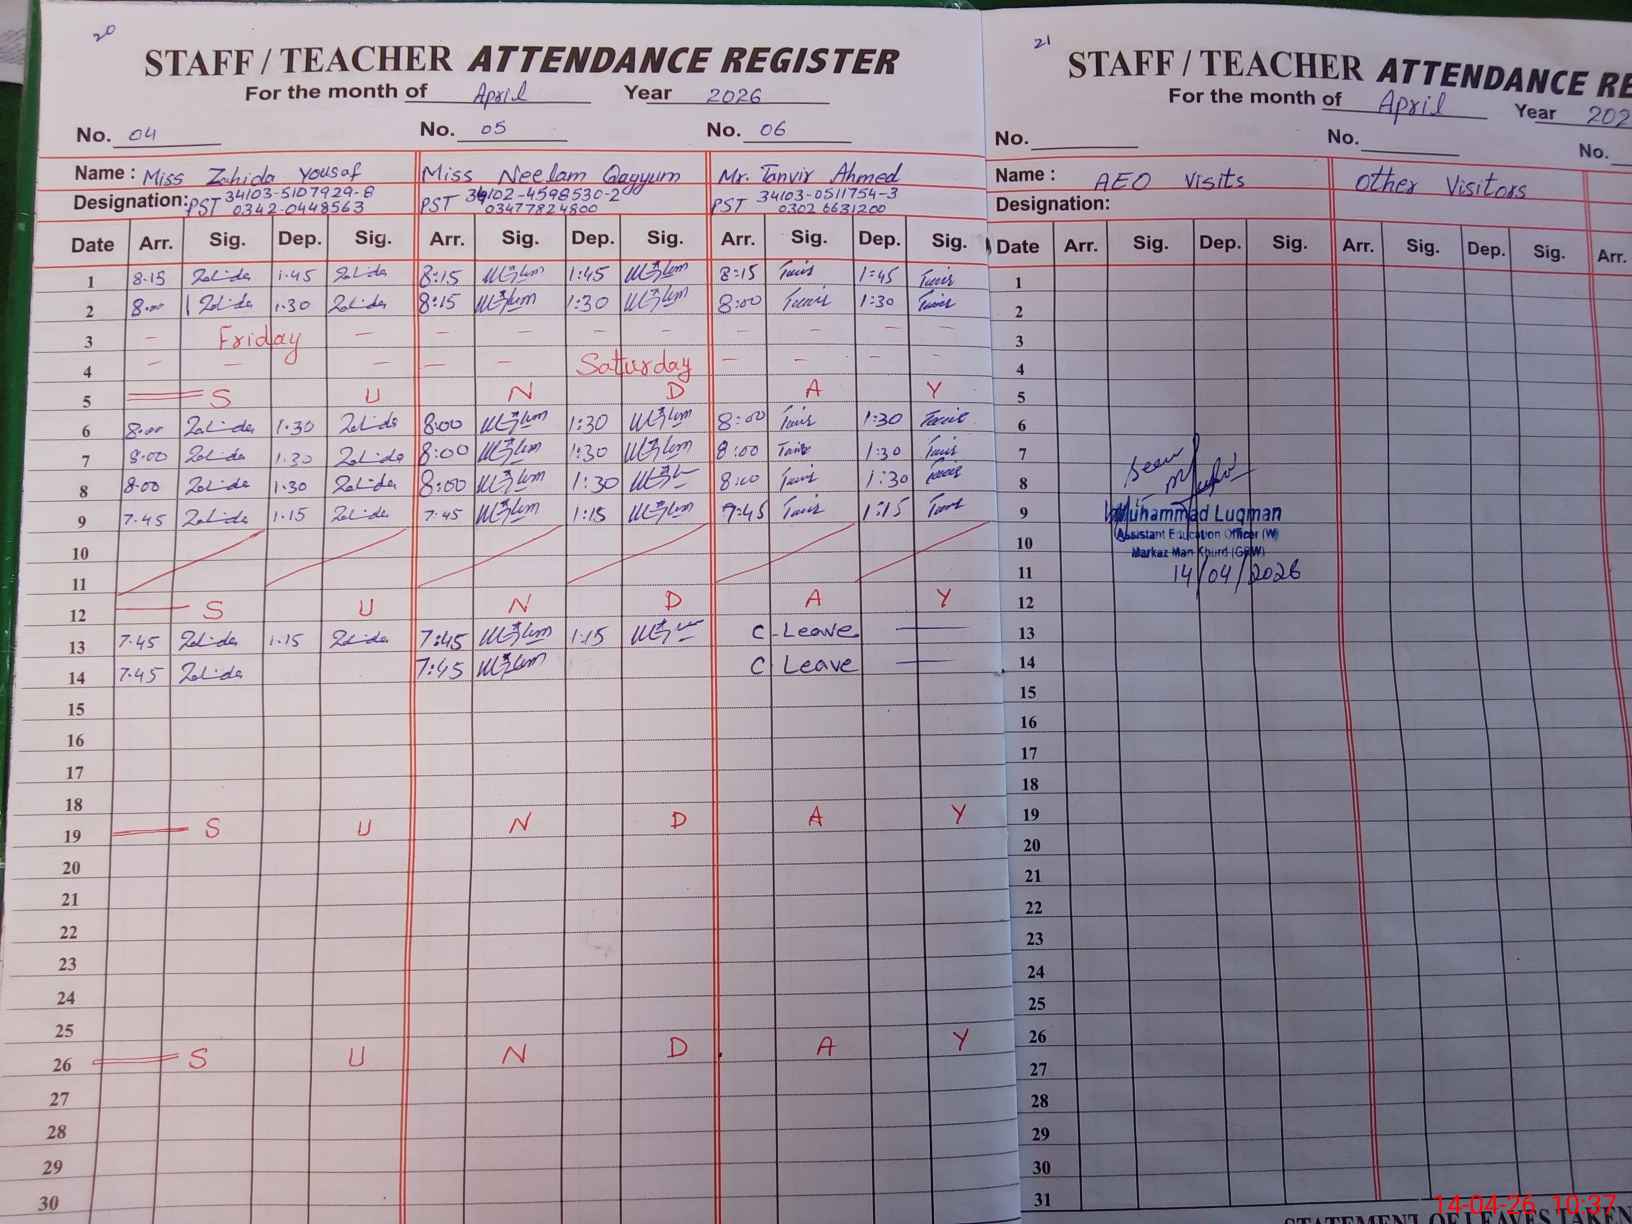 20
STAFF / TEACHER ATTENDANCE REGISTER
For the month of April Year 2026
No. 04 No. 05 No. 06
Name : Miss Zahida Yousaf Miss Neelam Qayyum Mr. Tanvir Ahmed
Designation: PST 34103-5107929-8 PST 34102-4598530-2 PST 34103-0511754-3
0342-0448563 03477824800 0302 6631200
Date Arr. Sig. Dep. Sig. Arr. Sig. Dep. Sig. Arr. Sig. Dep. Sig.
1 8.15 Zahida 1.45 Zahida 8:15 1:45 8:15 1:45
2 8.00 Zahida 1.30 Zahida 8:15 1:30 8:00 1:30
3 - Friday - - - - - - - - -
4 - - - - - Saturday - - - -
5 S U N D A Y
6 8.00 Zahida 1.30 Zahida 8:00 1:30 8:00 1:30
7 8.00 Zahida 1.30 Zahida 8:00 1:30 8:00 1:30
8 8.00 Zahida 1.30 Zahida 8:00 1:30 8:00 1:30
9 7.45 Zahida 1.15 Zahida 7:45 1:15 7:45 1:15
10
11
12 S U N D A Y
13 7.45 Zahida 1.15 Zahida 7:45 1:15 C-Leave
14 7.45 Zahida 7:45 C Leave
15
16
17
18
19 S U N D A Y
20
21
22
23
24
25
26 S U N D A Y
27
28
29
30
21
STAFF / TEACHER ATTENDANCE RE
For the month of April Year 202
No. No. No.
Name : AEO Visits Other Visitors
Designation:
Date Arr. Sig. Dep. Sig. Arr. Sig. Dep. Sig. Arr.
1
2
3
4
5
6
7 Seen
8
9 Muhammad Luqman
10 Assistant Education Officer (W)
Markaz Man Khurd (GRW)
11 14/04/2026
12
13
14
15
16
17
18
19
20
21
22
23
24
25
26
27
28
29
30
31
STATEMENT OF LEAVES TAKEN
14-04-26 10:37